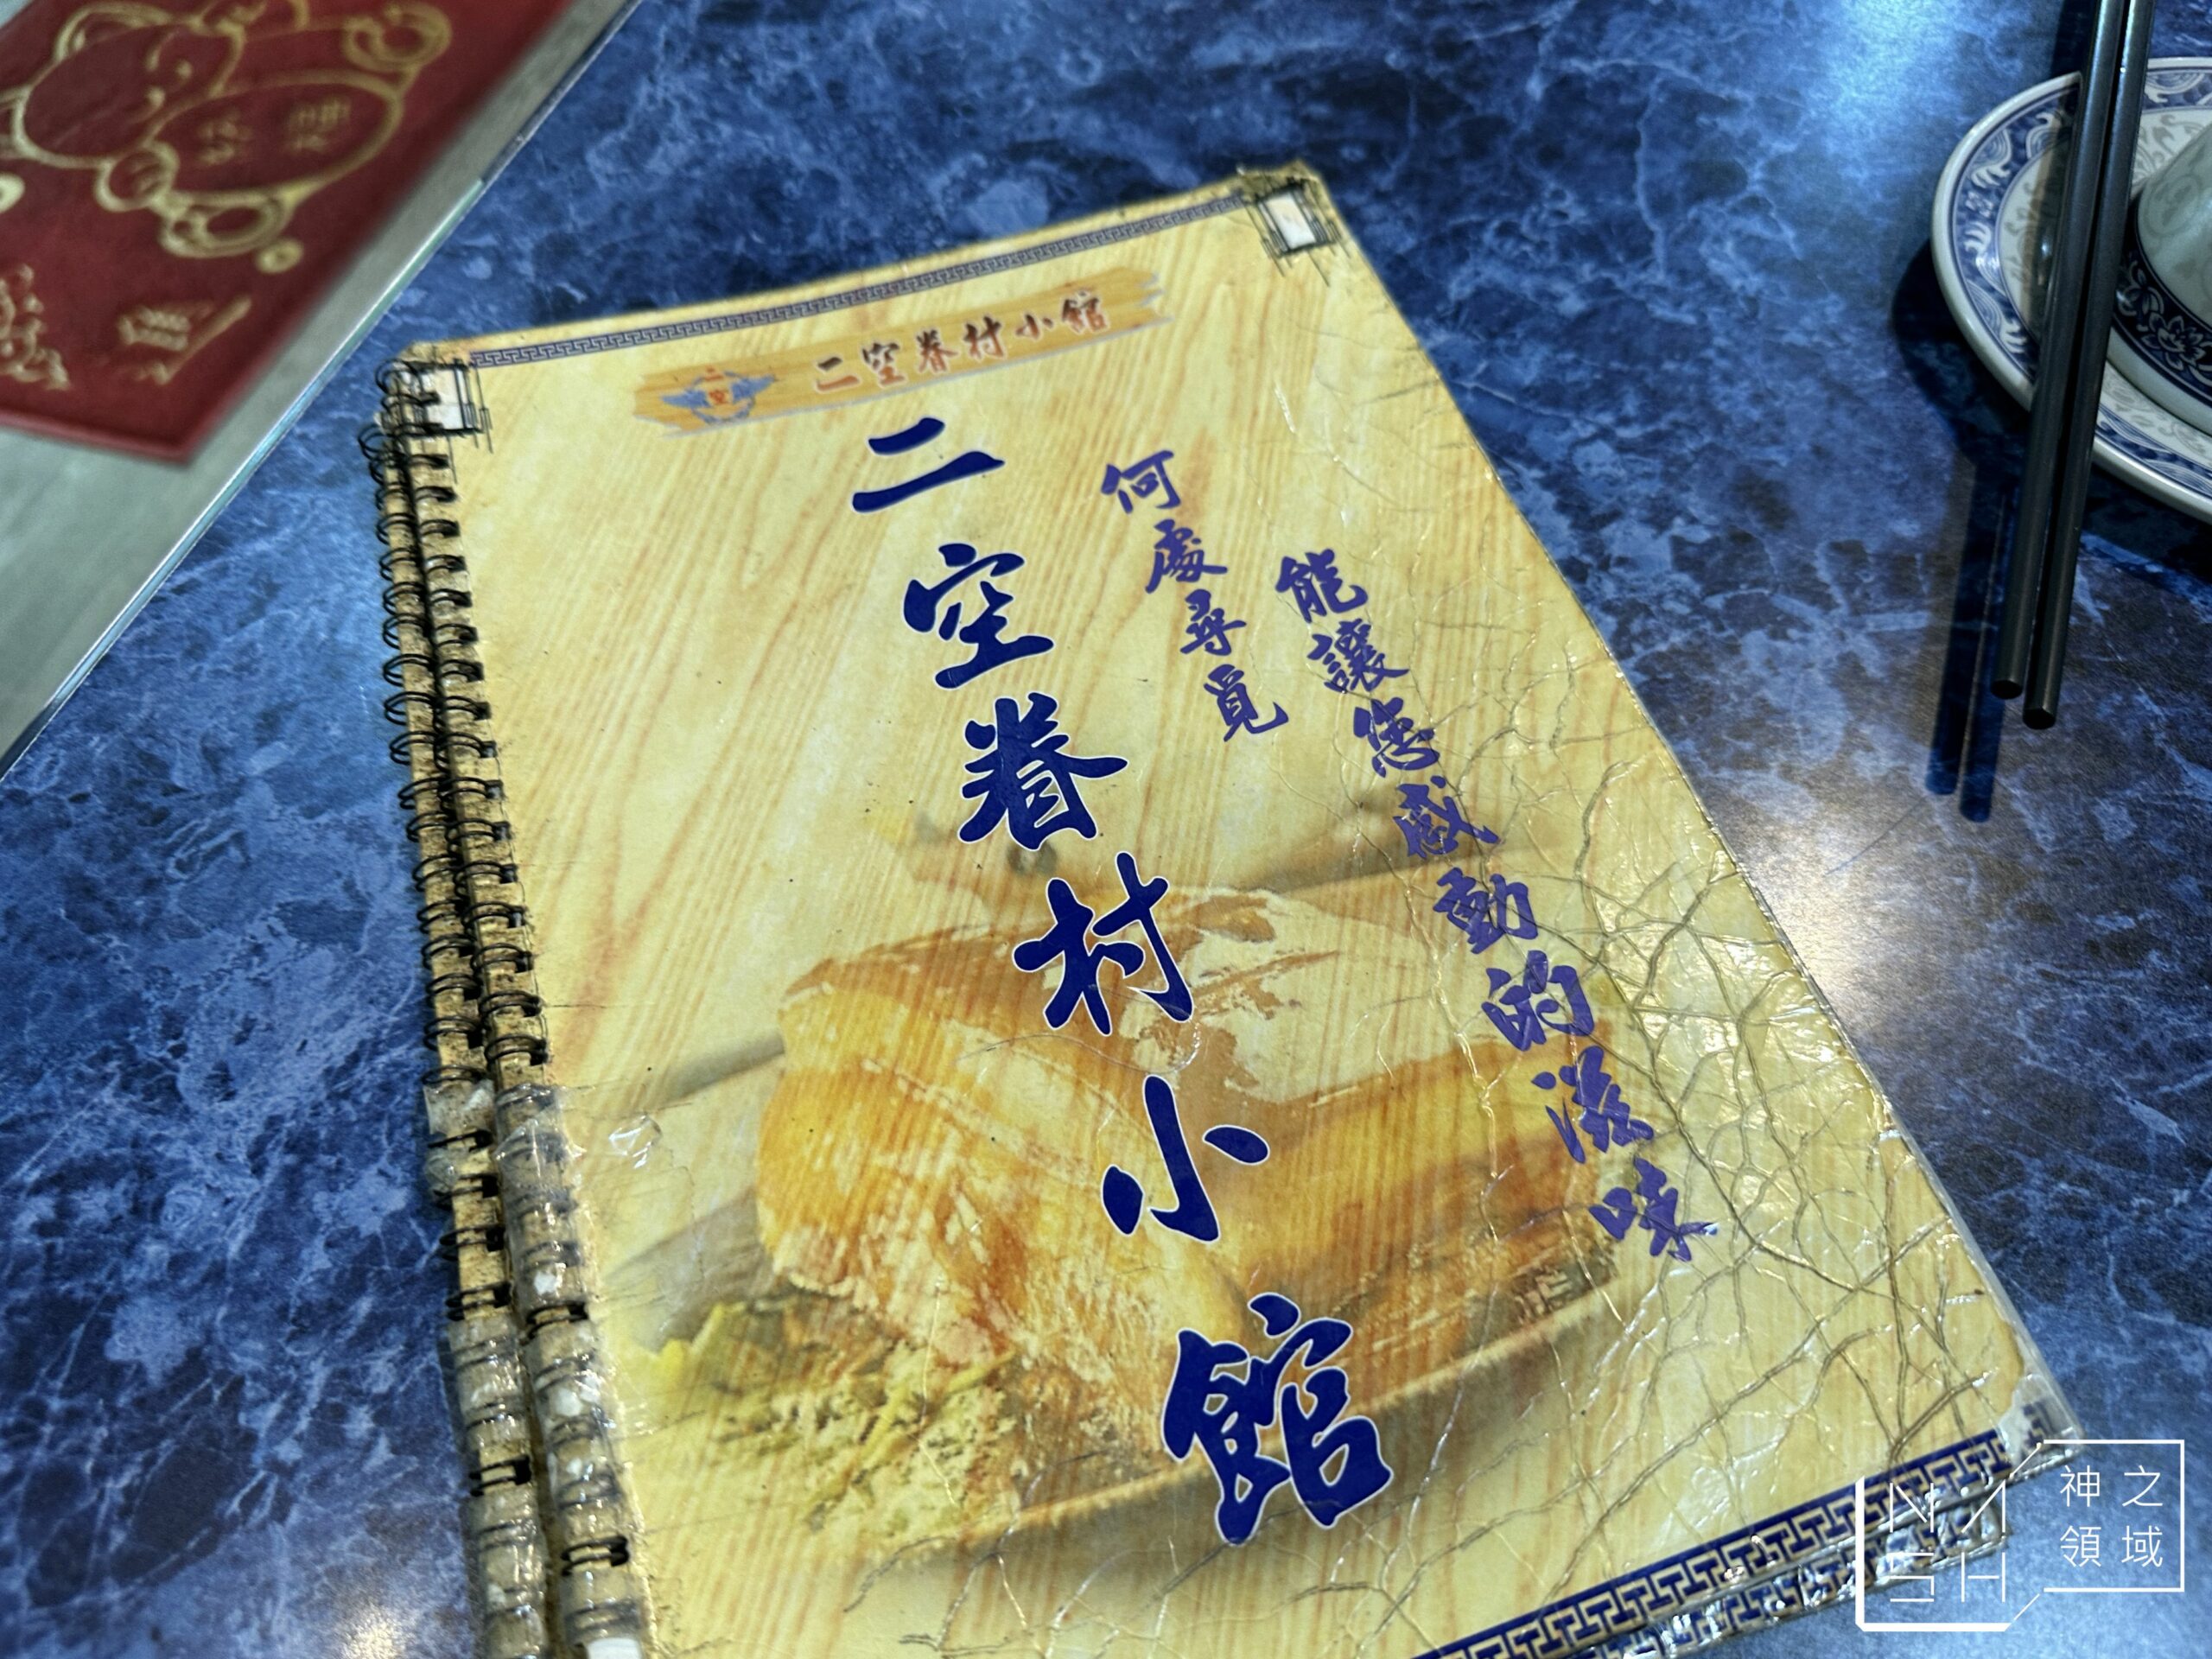 二空眷村小館
二空
二空眷村小館
何處尋覓
能讓您感動的滋味
神之
領域
NM
SH